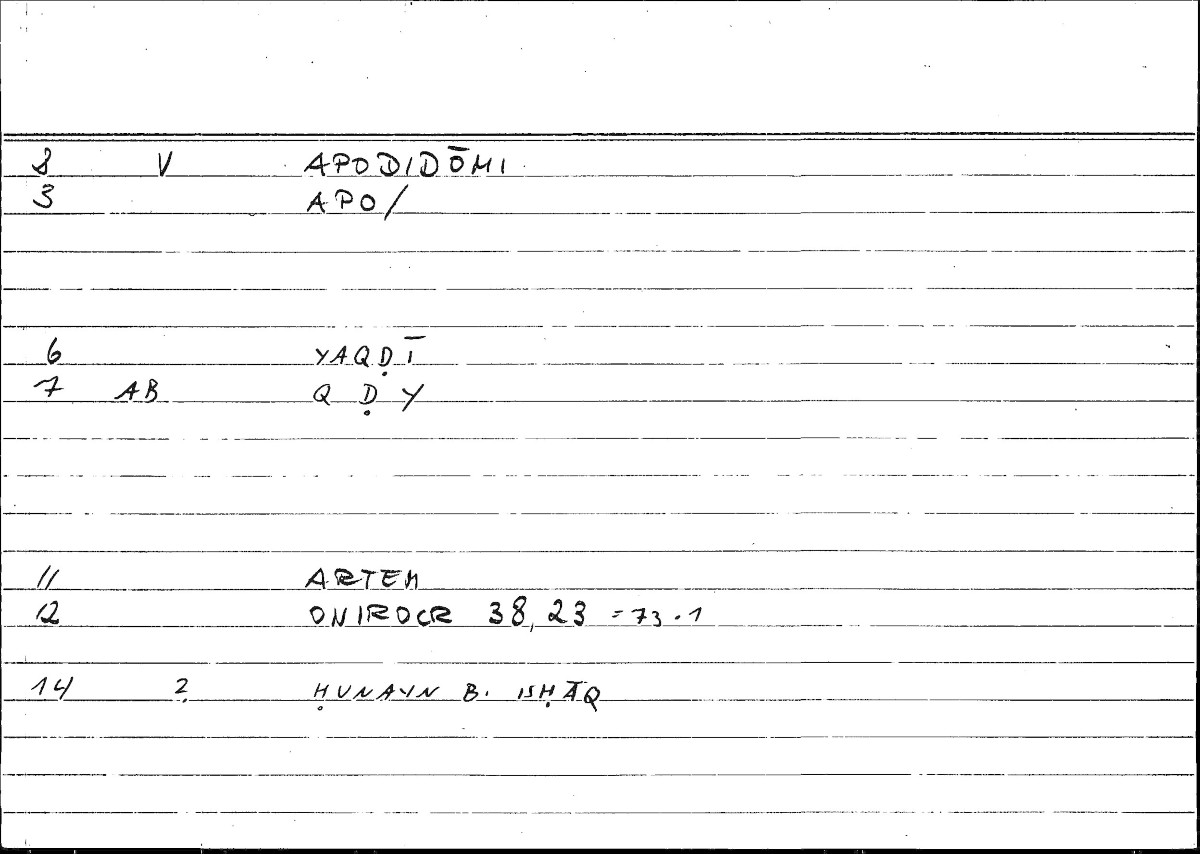 8 V APODIDŌMI
3 APO/
6 YAQḌĪ
7 AB Q Ḍ Y
11 ARTEM
12 ONIROCR 38,23 = 73.1
14 2 ḤUNAYN B. ISḤĀQ